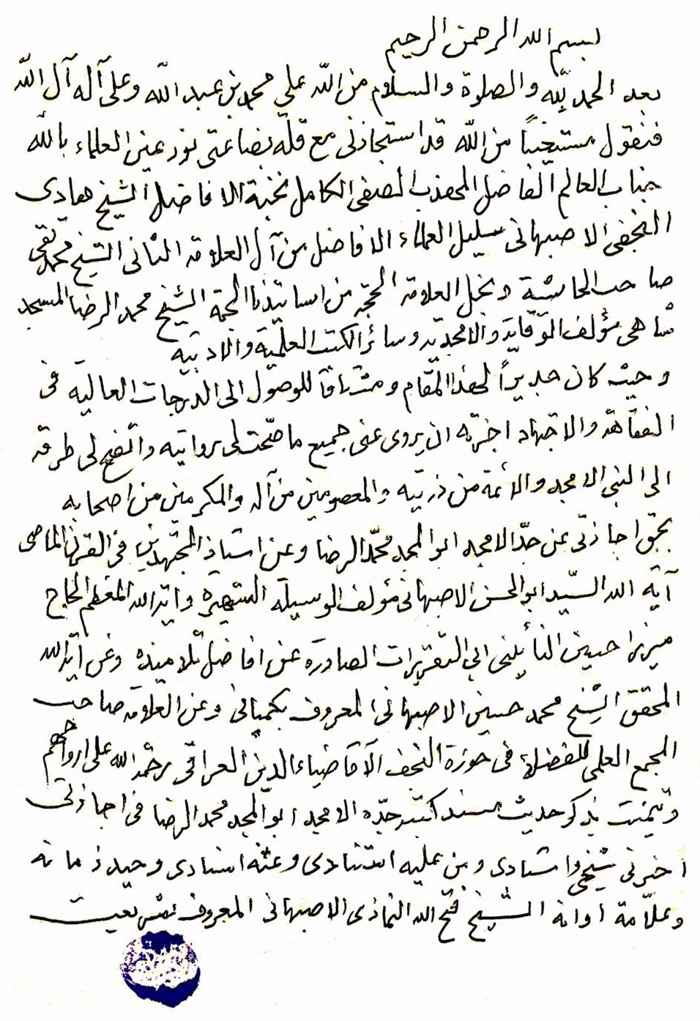 بسم الله الرحمن الرحيم
بعد الحمد لله والصلوة والسلام من الله علي محمد بن عبد الله وعلى آله آل الله
فنقول مستيخباً من الله قد استجازنى مع قلة بضاعتى نور عين العلماء بالله
جناب العالم الفاضل المهذب المصفى الكامل نخبة الافاضل الشيخ هادى
النجفى الاصبهانى سليل العلماء الافاضل من آل العلامة الثانى الشيخ محمد تقى
صاحب الحاشية و نجل العلامة الحجة من اساتيذنا الحجة الشيخ محمد الرضا المسجد
شاهى مؤلف الوقاية والامجدية وسائر الكتب العلمية والادبية
وحيث كان جديراً لهذا المقام ومشتاقاً للوصول الى الدرجات العالية فى
الفقاهة والاجتهاد اجزته ان يروى عنى جميع ما صحت لى روايته واتضح لى طرقه
الى النبى الامجد والائمة من ذريته والمعصومين من آله والمكرمين من اصحابه
بحق اجازتى عن جده الامجد ابو المجد محمد الرضا وعن استاذ المجتهدين فى القرن الماضى
آية الله السيد ابو الحسن الاصبهانى مؤلف الوسيلة الشهيرة واية الله المعظم الحاج
ميرزا حسين النائينى ابى التقريرات الصادرة عن افاضل تلاميذه وعن اية الله
المحقق الشيخ محمد حسين الاصبهانى المعروف بكمپانى وعن العلامة صاحب
المجمع العلمى للفضلاء فى حوزة النجف الآقا ضياء الدين العراقى رحمة الله على ارواحهم
وتيمنت بذكر حديث مسند كتبه جده الامجد ابو المجد محمد الرضا فى اجازتى
اخبرنى شيخى واستادى ومن عليه استنادى وعنه اسنادى وحيد زمانه
وعلامة اوانه الشيخ فتح الله النمازى الاصبهانى المعروف بشريعت